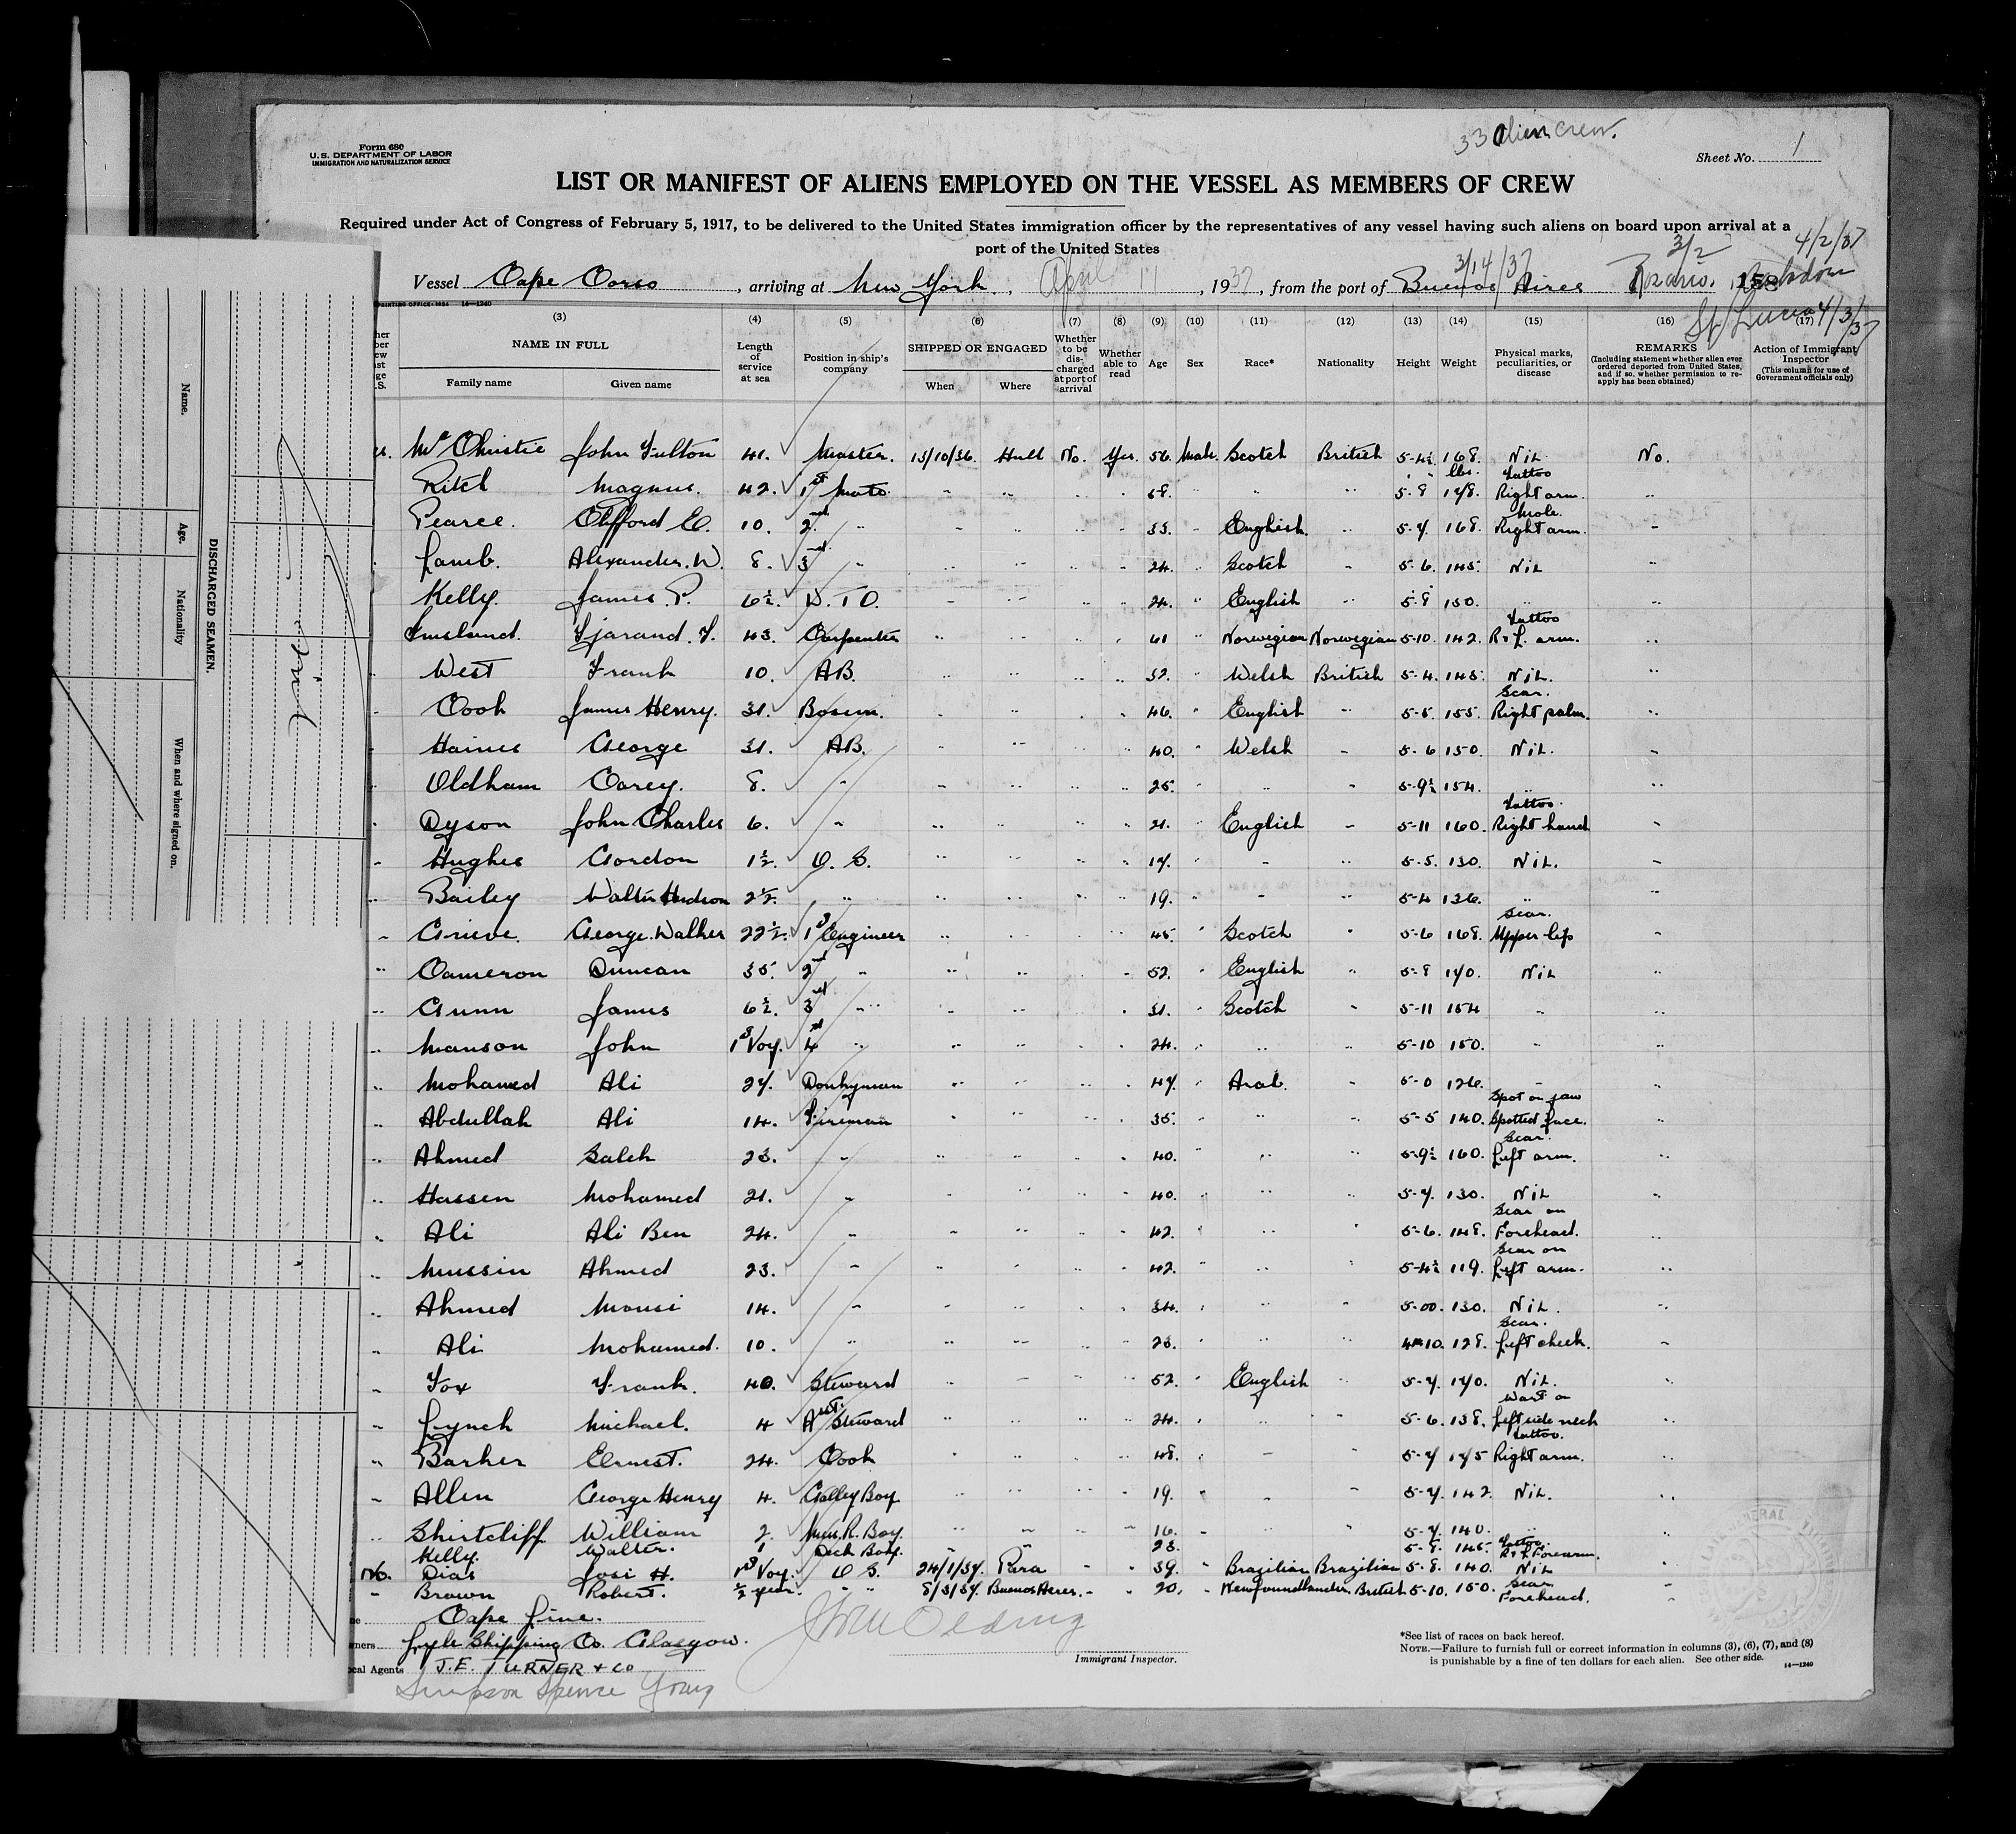 33 Alien Crew.
Form 680
U.S. DEPARTMENT OF LABOR
IMMIGRATION AND NATURALIZATION SERVICE
Sheet No. 1
LIST OR MANIFEST OF ALIENS EMPLOYED ON THE VESSEL AS MEMBERS OF CREW
Required under Act of Congress of February 5, 1917, to be delivered to the United States immigration officer by the representatives of any vessel having such aliens on board upon arrival at a
port of the United States
3/2 4/2/37
3/14/37
Vessel Cape Corso, arriving at New York, April 11, 1937, from the port of Buenos Aires Rosario.
St Lucia 4/3/37
14—1240
(3) (4) (5) (6) (7) (8) (9) (10) (11) (12) (13) (14) (15) (16) (17)
NAME IN FULL
Family name Given name
Length of service at sea
Position in ship's company
SHIPPED OR ENGAGED
When Where
Whether to be discharged at port of arrival
Whether able to read
Age
Sex
Race*
Nationality
Height
Weight
Physical marks, peculiarities, or disease
REMARKS
(Including statement whether alien ever ordered deported from United States, and if so, whether permission to reapply has been obtained)
Action of Immigrant Inspector
(This column for use of Government officials only)
McChristie John Fulton 41. Master. 13/10/36. Hull No. Yes. 56. Male. Scotch British 5-4½ 168. lbs. Nil No.
Ritch Magnus. 42. 1st Mate. " " " " 58. " " 5-8 178. Tattoo Right arm. "
Pearce. Clifford E. 10. 2nd " " " " " 33. " English. " 5-7. 168. Mole. Right arm. "
Lamb. Alexander. W. 8. 3rd " " " " " 24. " Scotch " 5-6. 145. Nil "
Kelly. James. P. 6½. W. T O. " " " " 24. " English " 5-8 150. " "
Imsland. Tjarand. T. 43. Carpenter " " " " 61 " Norwegian Norwegian 5-10. 142. Tattoo R & L. arm. "
West Frank 10. AB. " " " " 32. " Welsh British 5-4. 145. Nil. "
Cook James Henry. 31. Bosun. " " " " 46. " English " 5-5. 155. Scar. Right palm. "
Haines George 31. AB. " " " " 40. " Welsh " 5-6 150. Nil. "
Oldham Carey. 8. " " " " " 25. " " " 5-9½ 154. " "
Dyson John Charles 6. " " " " " 21. " English " 5-11 160. Tattoo. Right hand "
Hughes Gordon 1½. O. S. " " " " 17. " " " 5-5. 130. Nil. "
Bailey Walter Hudson 2½. " " " " " 19. " " " 5-4 136. " "
Grieve. George. Walker 22½. 1st Engineer " " " " 45. " Scotch " 5-6 168. Scar. Upper lip "
Cameron Duncan 35. 2nd " " " " " 52. " English " 5-8 170. Nil "
Gunn James 6½. 3rd " " " " " 31. " Scotch " 5-11 154 " "
Manson John 1st Voy. 4th " " " " " 24. " " " 5-10 150. " "
Mohamed Ali 27. Donkyman " " " " 47. " Arab. " 5-0 126. " "
Abdullah Ali 14. Fireman " " " " 35. " " " 5-5 140. Spot on jaw Spotted face. "
Ahmed Saleh 23. " " " " " 40. " " " 5-9½ 160. Scar. Left arm. "
Hassen Mohamed 21. " " " " " 40. " " " 5-7. 130. Nil "
Ali Ali Ben 24. " " " " " 42. " " " 5-6. 148. Scar on Forehead. "
Mussin Ahmed 23. " " " " " 42. " " " 5-4½ 119. Scar on Left arm. "
Ahmed Mousi 14. " " " " " 34. " " " 5-00. 130. Nil. "
Ali Mohamed. 10. " " " " " 23. " " 4-10. 128. Scar. Left cheek. "
Fox Frank. 40. Steward " " " " 52. " English " 5-7. 170. Nil. "
Lynch Michael. 4 Asst. Steward " " " " 24. " " " 5-6. 138. Wart on Left side neck "
Barker Ernest. 24. Cook " " " " 48. " " " 5-7 175 Tattoo. Right arm. "
Allen George Henry 4. Galley Boy " " " " 19. " " " 5-7. 142. Nil. "
Shirtcliff William 2. Mess. R. Boy. " " " " 16. " " " 5-7. 140. " "
Kelly. Walter. 1 Deck Boy. " " 23. 5-8. 145. Tattoo. R & L Forearm.
No. Dias José H. 1st Voy. O S. 24/1/37. Para " 39. " Brazilian Brazilian 5-8. 140. Nil "
" Brown Robert. ½ year. " " 8/3/37. Buenos Aeres. " " 20. " Newfoundlander. British 5-10. 150. Scar Forehead. "
Cape Line.
Lyle Shipping Co. Glasgow.
Local Agents J.E. TURNER & Co
Simpson Spence Young
Immigrant Inspector.
*See list of races on back hereof.
NOTE.—Failure to furnish full or correct information in columns (3), (6), (7), and (8)
is punishable by a fine of ten dollars for each alien. See other side.
14—1240
DISCHARGED SEAMEN.
Name. Age. Nationality When and where signed on.